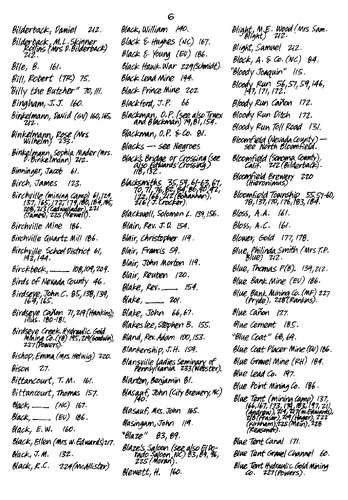 6
Bilderback, Daniel 212.
Bilderback, M.L. Skinner
Rollins (Mrs D. Bilderback)
212.
Bile, B. 161.
Bill, Robert (TR) 75.
"Billy the Butcher" 70, 111.
Bingham, J.J. 160.
Binkelmann, David (GV) 160, 165,
212.
Binkelmann, Rosa (Mrs
Wilhelm) 233.
Binkelmann, Sophia Mader (Mrs.
D. Binkelmann) 212.
Birminger, Jacob 61.
Birch, James 123.
Birchville (mining camp) 61, 129,
Birchville Mine 186.
Birchville Quartz Mill 186.
Birchville School District 61,
142, 144.
Birckbeck, ___ 108, 109, 209.
Birds of Nevada County 46.
Birdseye, John C. 85, 138, 139,
164, 165.
Birdseye Cañon 71, 219 (Hankins);
illus. 180-181.
Birdseye Creek Hydraulic Gold
Mining Co. (YB) 195, 219 (Goodwin),
227 (Powers).
Bishop, Emma (Mrs Helwig) 220.
Bison 27.
Bittancourt, T.M. 161.
Bittancourt, Thomas 157.
Black, ___ (NC) 167.
Black, ___ (EU) 186.
Black, E.W. 160.
Black, Ellen (Mrs W. Edwards) 217.
Black, J.M. 132.
Black, R.C. 224 (McAllister)
Black, William 140.
Black & Hughes (NC) 167.
Black & Young (EU) 186.
Black Hawk War 229 (Schmidt).
Black Lead Mine 194.
Black Prince Mine 202.
Blackford, J.P. 66
Blackman, O.P. (see also Truex
and Blackman) 79, 81, 154.
Blackman, O.P. & Co. 81.
Blacks — see Negroes
Black's Bridge or Crossing (see
also Edwards Crossing)
118, 132.
Blacksmiths 35, 59, 61-63, 67,
Blackwell, Solomon L. 139, 156.
Blain, Rev. J.D. 154.
Blair, Christopher 119.
Blair, Francis 59.
Blair, John Morton 119.
Blair, Reuben 120.
Blake, Rev. ___ 154.
Blake, ___ 201.
Blake, John 66, 67.
Blakeslee, Stephen B. 155.
Bland, Rev. Adam 100, 153.
Blankenship, J.H. 159.
Blansville Ladies Seminary of
Pennsylvania 233 (Webster).
Blanton, Benjamin 81.
Blasauf, John (City Brewery, NC)
140.
Blasauf, Mrs. John 165.
Blasingam, John 119.
"Blaze" 83, 89.
Blaze's Saloon (see also El Do-
rado Saloon, NC) 83, 89, 96,
225 (Moran).
Blewett, H. 160.
Blight, M.E. Wood (Mrs Sam.
Blight) 212.
Blight, Samuel 212.
Block, A. & Co. (NC) 84.
"Bloody Joaquin" 115.
Bloody Run 56, 57, 59, 146,
147, 171, 172.
Bloody Run Cañon 172.
Bloody Run Ditch 172.
Bloody Run Toll Road 131.
Bloomfield (Nevada County) —
see North Bloomfield.
Bloomfield (Sonoma County),
Calif. 212 (Bitterback).
Bloomfield Brewery 220
(Hieronimus).
Bloomfield Township 55, 57-60,
78, 137, 170, 176, 183, 184.
Bloss, A.A. 161.
Bloss, A.C. 161.
Blower, Gold 177, 178.
Blue, Philinda Smith (Mrs T.P.
Blue) 212.
Blue, Thomas P (B). 139, 212.
Blue Bank Mine (EU) 186.
Blue Bank Mining Co. (ME) 227
(Pryde), 228 (Rankins).
Blue Cañon 127.
Blue Cement 185.
"Blue Coat" 68, 69.
Blue Coat Placer Mine (EU) 186.
Blue Gravel Mine (RH) 184.
Blue Lead Co. 197.
Blue Point Mining Co. 186.
Blue Tent (mining camp) 137,
Blue Tent Canal 171.
Blue Tent Gravel Channel 60.
Blue Tent Hydraulic Gold Mining
Co. 227 (Powers).